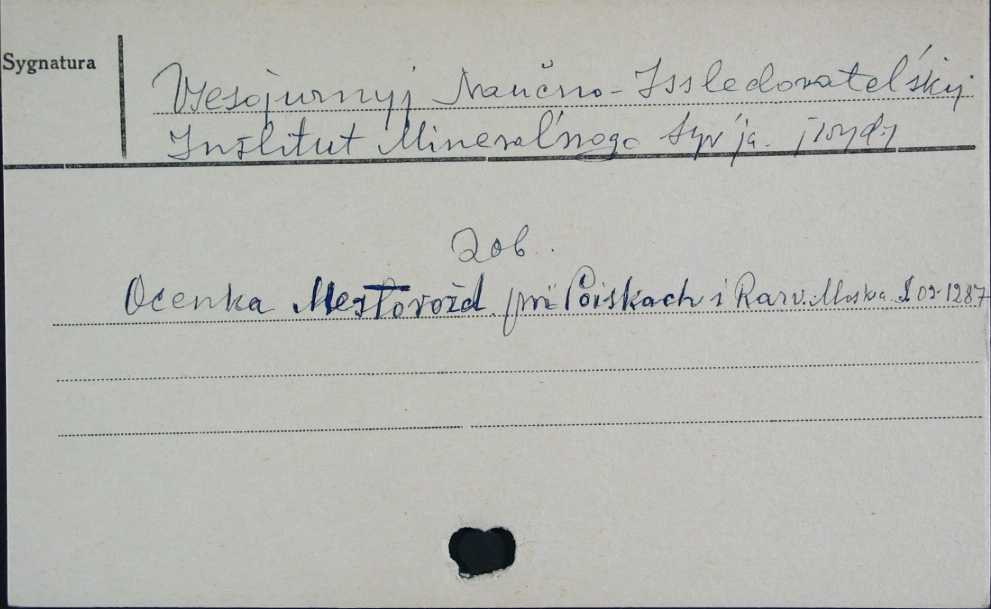 Sygnatura
Vsesojurnyj Naučno-Issledovatel'skij
Institut Mineral'nogo Syr'ja.
Zob.
Ocenka Mestorožd. pri Poiskach i Razv. Moskva I 09-1287